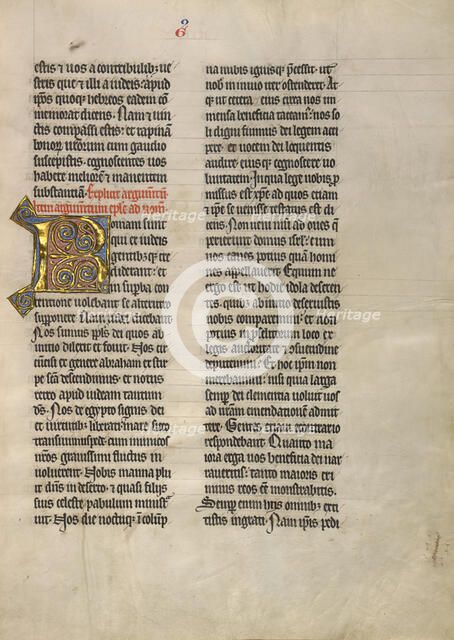 6
estis & uos a contribulib; ue
stris que & illi a iudeis. apud
ip̃os quoq; hebreos eadem com
memorat dicens. Nam & uin
ctis compassi estis: et rapinam
bonoꝝ cum gaudio
suscepistis. cognoscentes uos
habere meliorem & manentem
substantiam. Explicit argumtū
argumentum ep̃le ad rom̃.
Romani sunt
qui ex iudeis
gentibusq; cre
diderant: et
sup̃ba con
tentione uolebant se alterutro
supponere.
Nos sumus pp̃ls dei quos ab
initio dilexit et fouit. Nos cir
cũcisi ex genere abraham ex stir
pe sc̃a descendimus. et notus
retro apud iudeam tantum
ds̃. Nos de egypto signis dei
et uirtutib; liberati: mare sicco
transiuimus pede. cum inimicos
nostros grauissimi fluctus in
uoluerent. Nobis manna plu
it dñs in deserto. & quasi filijs
suis celeste pabulum ministra
uit. Nos die noctuq; ĩ colũp
na nubis ignisq; p̃cessit. ut
nobis in inuio iter ostenderet. At
q; ut cetera eius circa nos im
mensa beneficia taceam9: nos so
li digni fuimus dei legem acci
pere. et uocem dei loquentis
audire. eiusq; cognoscere uo
luntatem. In qua lege nobis p̃
missus est xp̃c. ad quos etiam
& ip̃e se uenisse testatus est di
cens. Non ueni nisi ad oues q̃
perierunt domus isrl̃: cum
uos canes potius quam homi
nes appellauerit. Equum ne
ergo est ut hodie idola deseren
tes. quib; ab initio deseruistis
nobis comparemini. et non
potius in p̃selitorum loco ex
legis auctoritate & consuetudine
deputemini? Et hoc ip̃m non
merebamini. nisi quia larga
semp̃ dei clementia uoluit uos
ad nr̃am emendationem admit
tere. Gentes contrario
respondebant. Quanto ma
iora erga uos beneficia dei nar
raueritis: tanto maioris cri
minis reos esse monstrabitis.
Semper enim hijs omnib; exti
tistis ingrati. Nam ip̃is pedi
Heritage
Heritage
Heritage